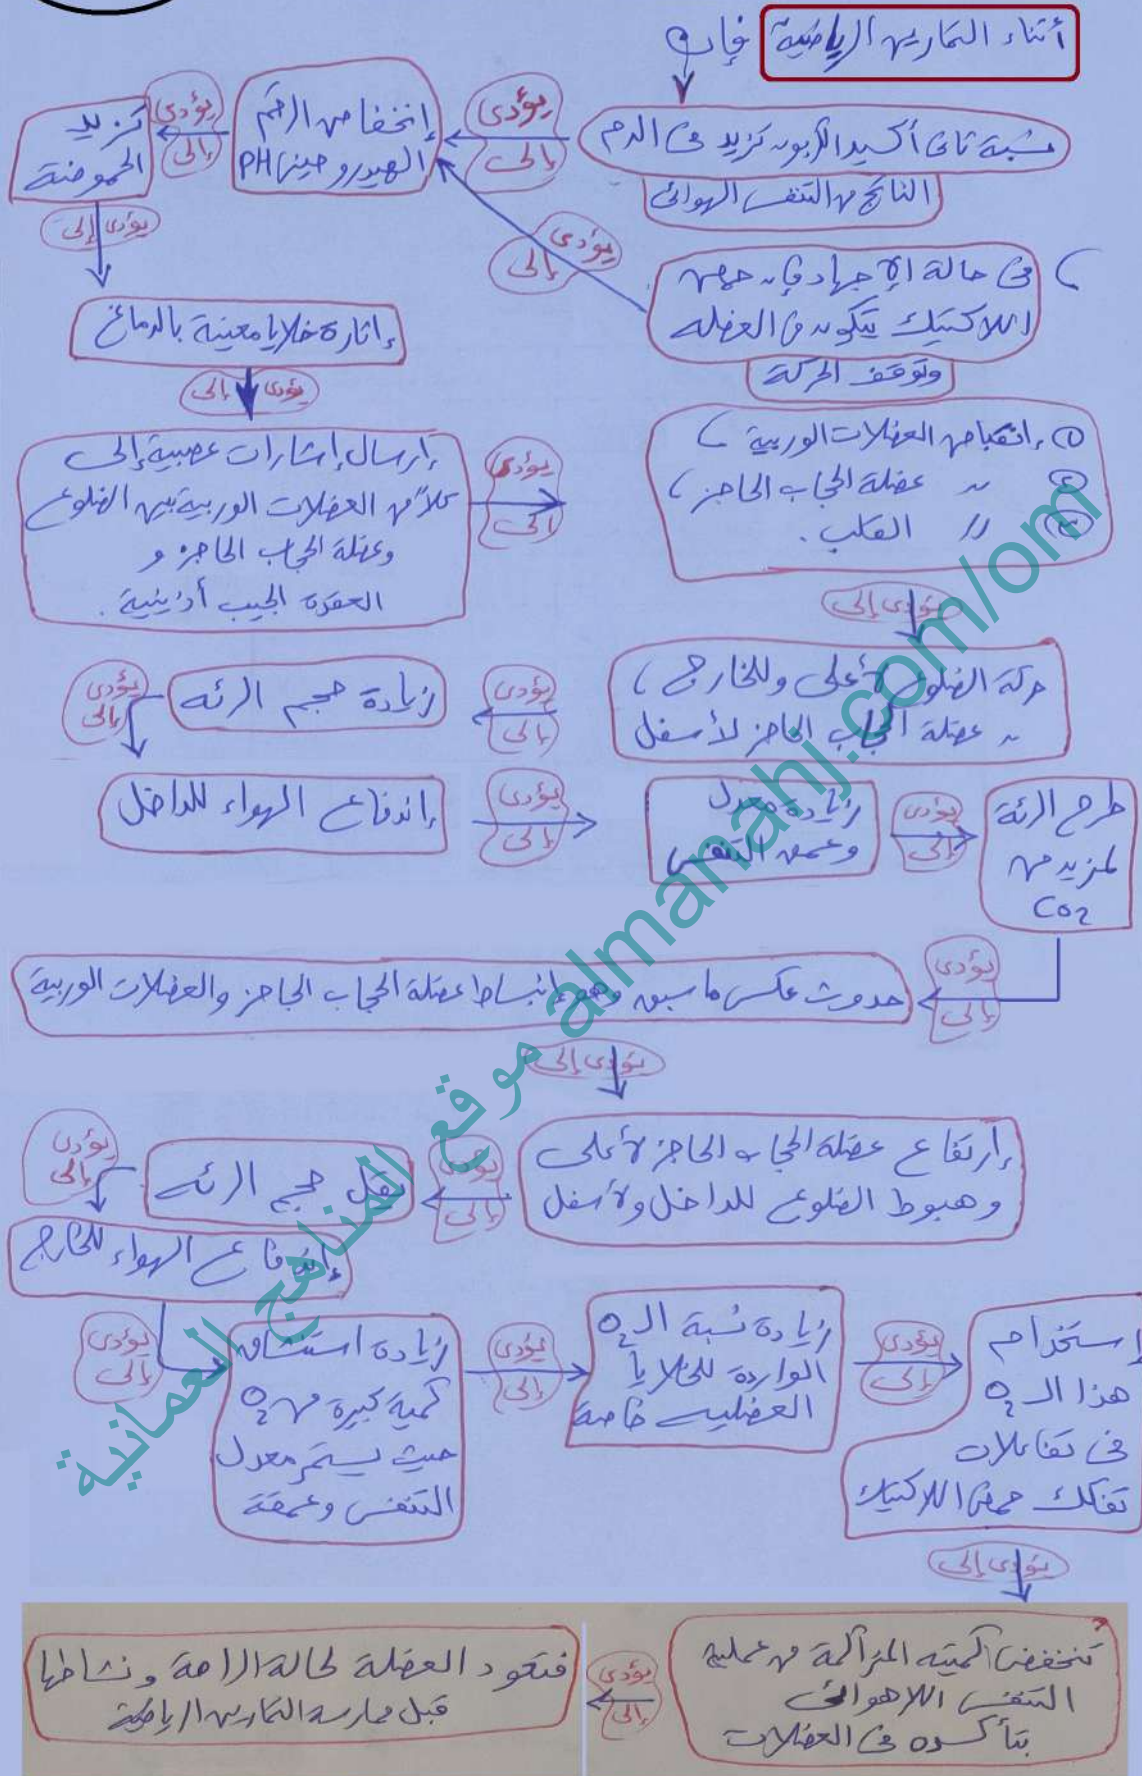 أثناء التمارين الرياضية فإن
نسبة ثاني أكسيد الكربون تزيد فى الدم
الناتج من التنفس الهوائى
يؤدى
إلى
إنخفاض الرقم
الهيدروجينى PH
يؤدى
إلى
تزيد
الحموضة
يؤدى إلى
فى حالة الإجهاد فإن حمض
اللاكتيك يتكون فى العضله
وتوقف الحركة
يؤدى
إلى
إثارة خلايا معينة بالدماغ
يؤدى إلى
إرسال إشارات عصبية إلى
كلاً من العضلات الوربية بين الضلوع
وعضلة الحجاب الحاجز و
العقدة الجيب أذينية .
يؤدى
إلى
① إنقباض العضلات الوربية
② 〃 عضلة الحجاب الحاجز
③ 〃 القلب .
يؤدى إلى
حركة الضلوع لأعلى وللخارج
〃 عضلة الحجاب الحاجز لأسفل
يؤدى
إلى
زيادة حجم الرئه
يؤدى
إلى
إندفاع الهواء للداخل
يؤدى
إلى
زيادة معدل
وعمق التنفس
يؤدى
إلى
طرح الرئة
لمزيد من
CO₂
يؤدى
إلى
حدوث عكس ما سبق وهو إنبساط عضلة الحجاب الحاجز والعضلات الوربية
يؤدى إلى
إرتفاع عضلة الحجاب الحاجز لأعلى
وهبوط الضلوع للداخل ولأسفل
يؤدى
إلى
يقل حجم الرئه
يؤدى
إلى
إندفاع الهواء للخارج
يؤدى
إلى
زيادة استنشاق
كمية كبيرة من O₂
حيث يستمر معدل
التنفس وعمقة
يؤدى
إلى
زيادة نسبة الـ O₂
الواردة للخلايا
العضليه خاصة
يؤدى
إلى
إستخدام
هذا الـ O₂
فى تفاعلات
تفكك حمض اللاكتيك
يؤدى إلى
تنخفض الكميه المتراكمة من عملية
التنفس اللاهوائى
بتأكسده فى العضلات
يؤدى
إلى
فتعود العضلة لحالة الراحة ونشاطها
قبل ممارسة التمارين الرياضية
موقع المناهج العمانية almanahj.com/om